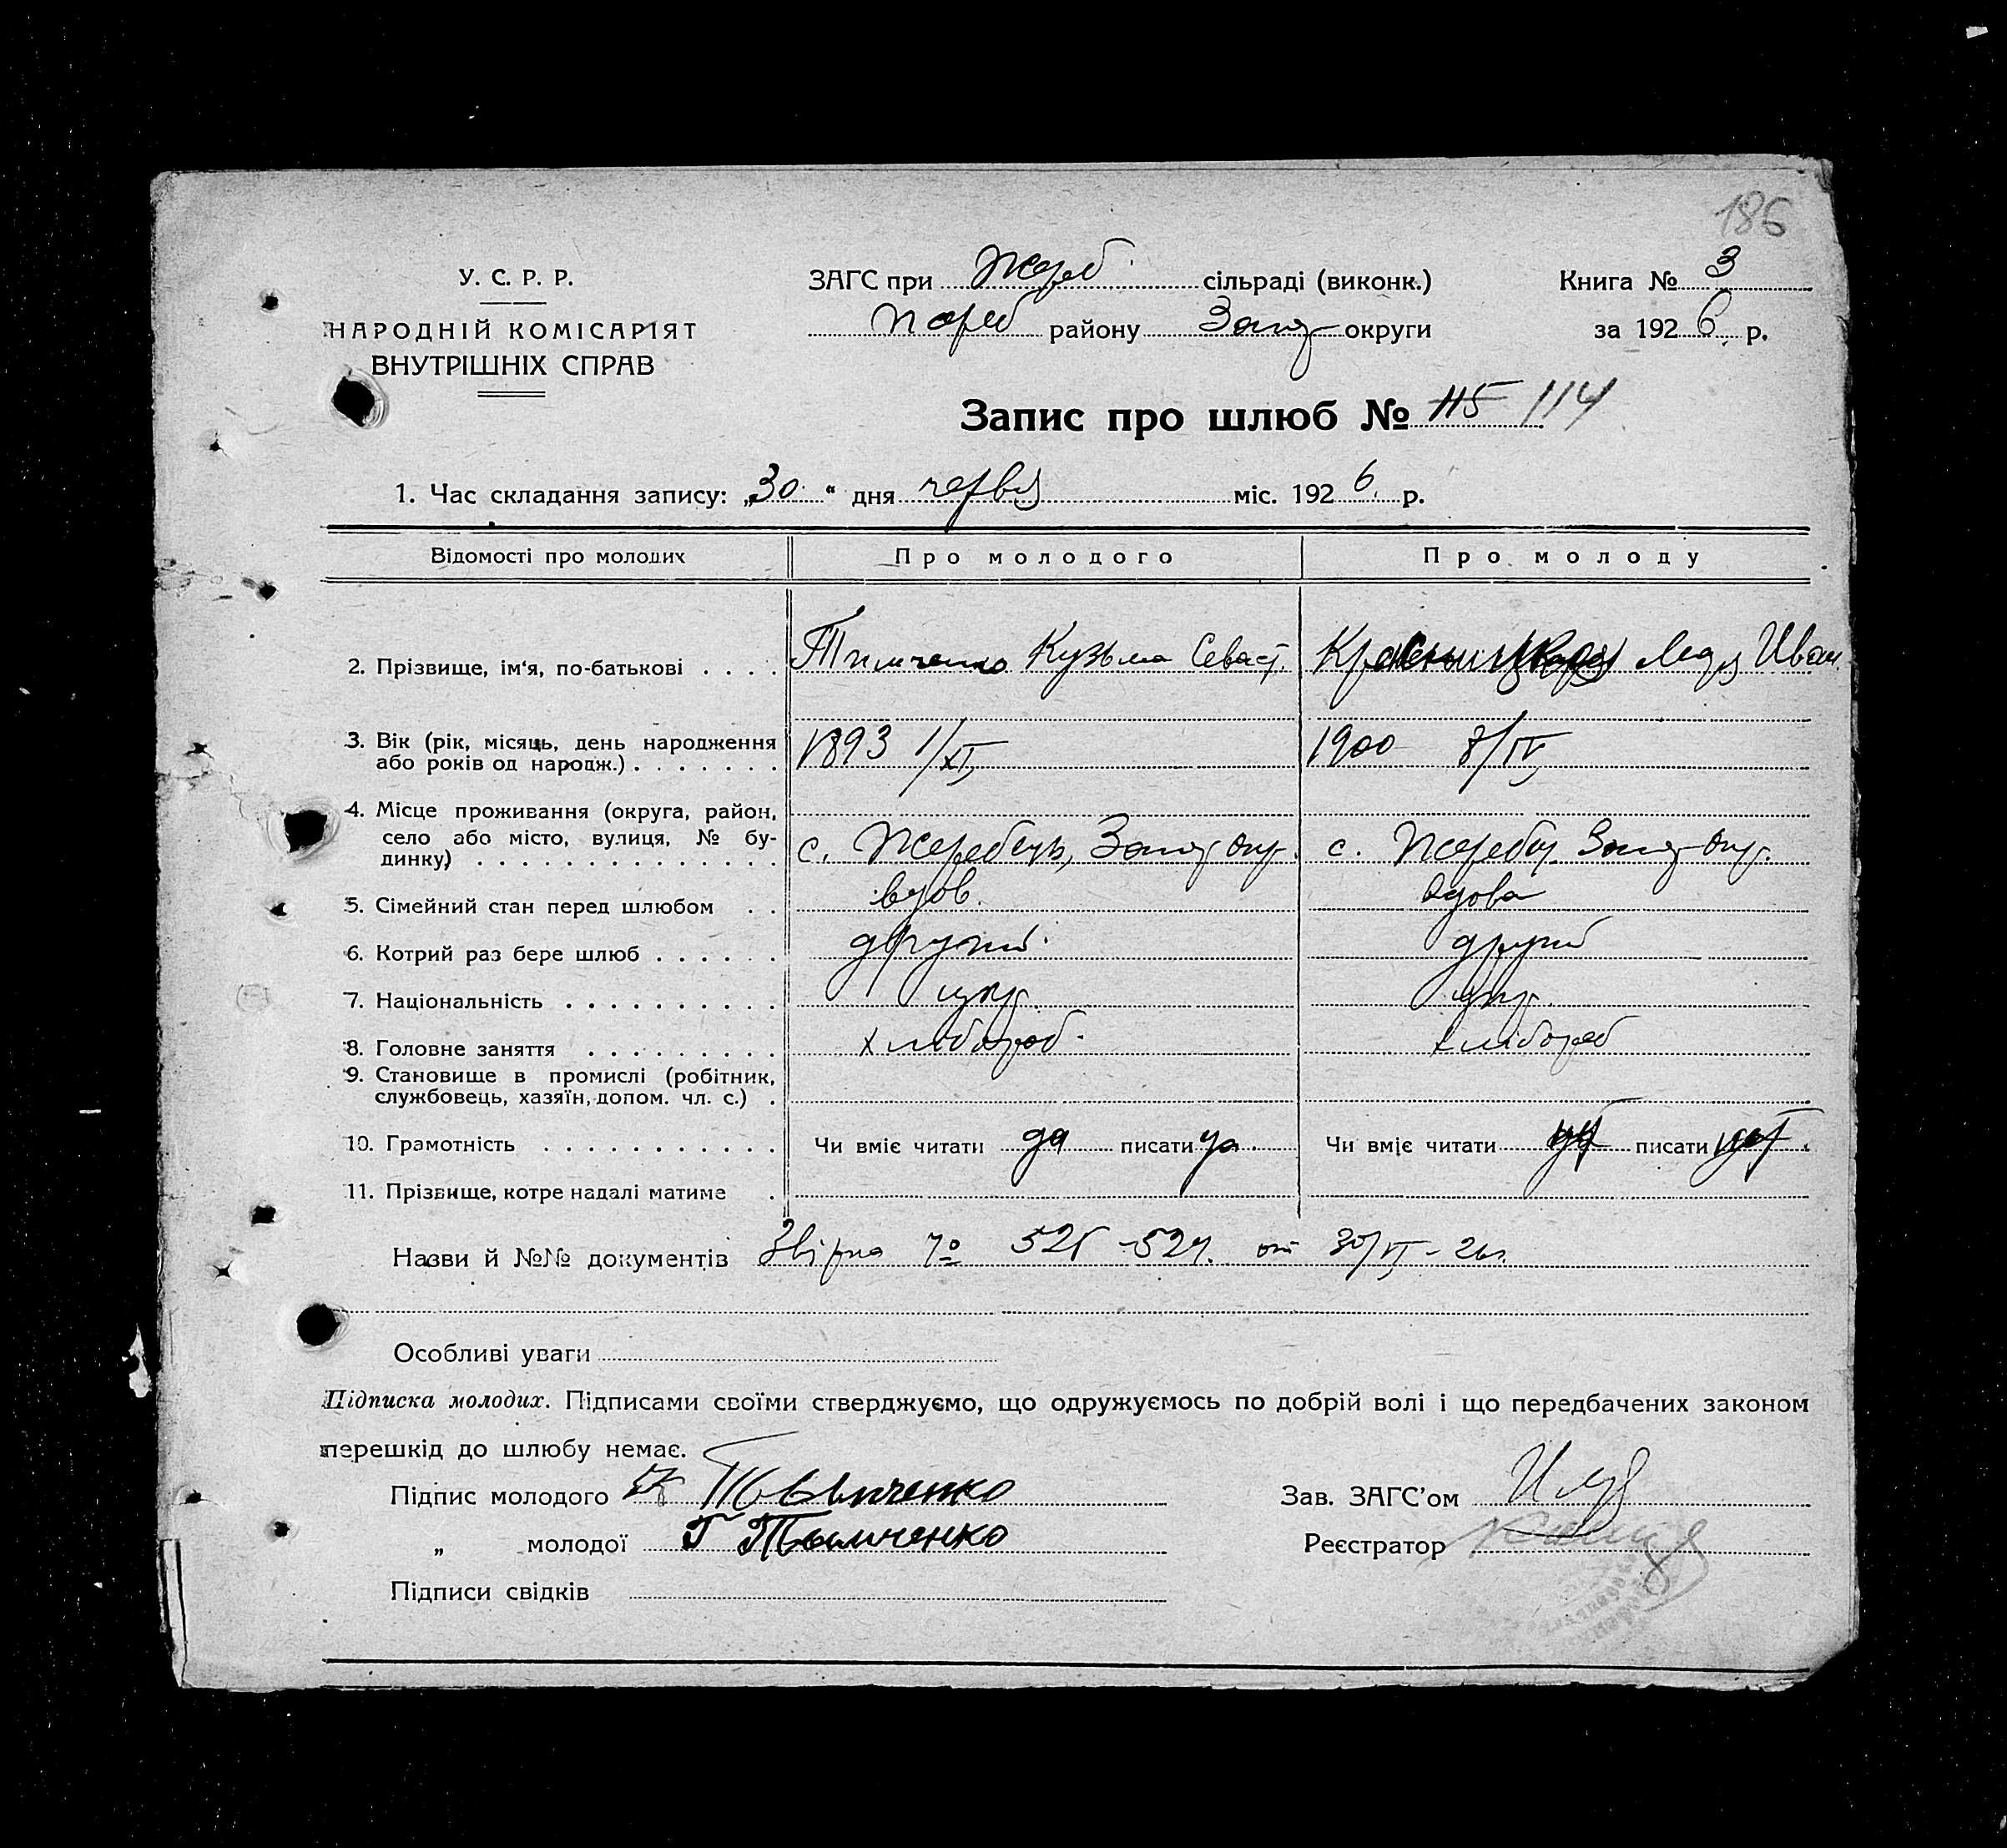 186
У. С. Р. Р.
НАРОДНІЙ КОМІСАРІЯТ
ВНУТРІШНІХ СПРАВ
ЗАГС при Жереб. сільраді (виконк.)
Жереб району Запор округи
Книга № 3
за 1926 р.
Запис про шлюб № 115 114
1. Час складання запису: „30“ дня червня міс. 1926. р.
Відомості про молодих
Про молодого
Про молоду
2. Прізвище, ім'я, по-батькові . . . .
Тимченко Кузьма Севаст.
Иван.
3. Вік (рік, місяць, день народження
або років од народж.) . . . . . . .
1893 1/XI
1900 8/IV
4. Місце проживання (округа, район,
село або місто, вулиця, № бу-
динку) . . . . . . . . . . . . . .
с. Жеребець, Запор Окр.
с. Жеребец. Запор Окр.
5. Сімейний стан перед шлюбом . .
вдов.
вдова
6. Котрий раз бере шлюб . . . . . .
другий.
другий
7. Національність . . . . . . . . . .
укр.
укр.
8. Головне заняття . . . . . . . . .
хлібороб.
хлібороб
9. Становище в промислі (робітник,
службовець, хазяїн, допом. чл. с.) .
10. Грамотність . . . . . . . . . . .
Чи вміє читати да писати да.
Чи вміє читати писати нет.
11. Прізвище, котре надалі матиме .
Назви й №№ документів Звірка № от 30/VI - 26 г.
Особливі уваги
Підписка молодих. Підписами своїми стверджуємо, що одружуємось по добрій волі і що передбачених законом
перешкід до шлюбу немає.
Підпис молодого К Тымченко
„ молодої Т Тымченко
Підписи свідків
Зав. ЗАГС'ом
Реєстратор